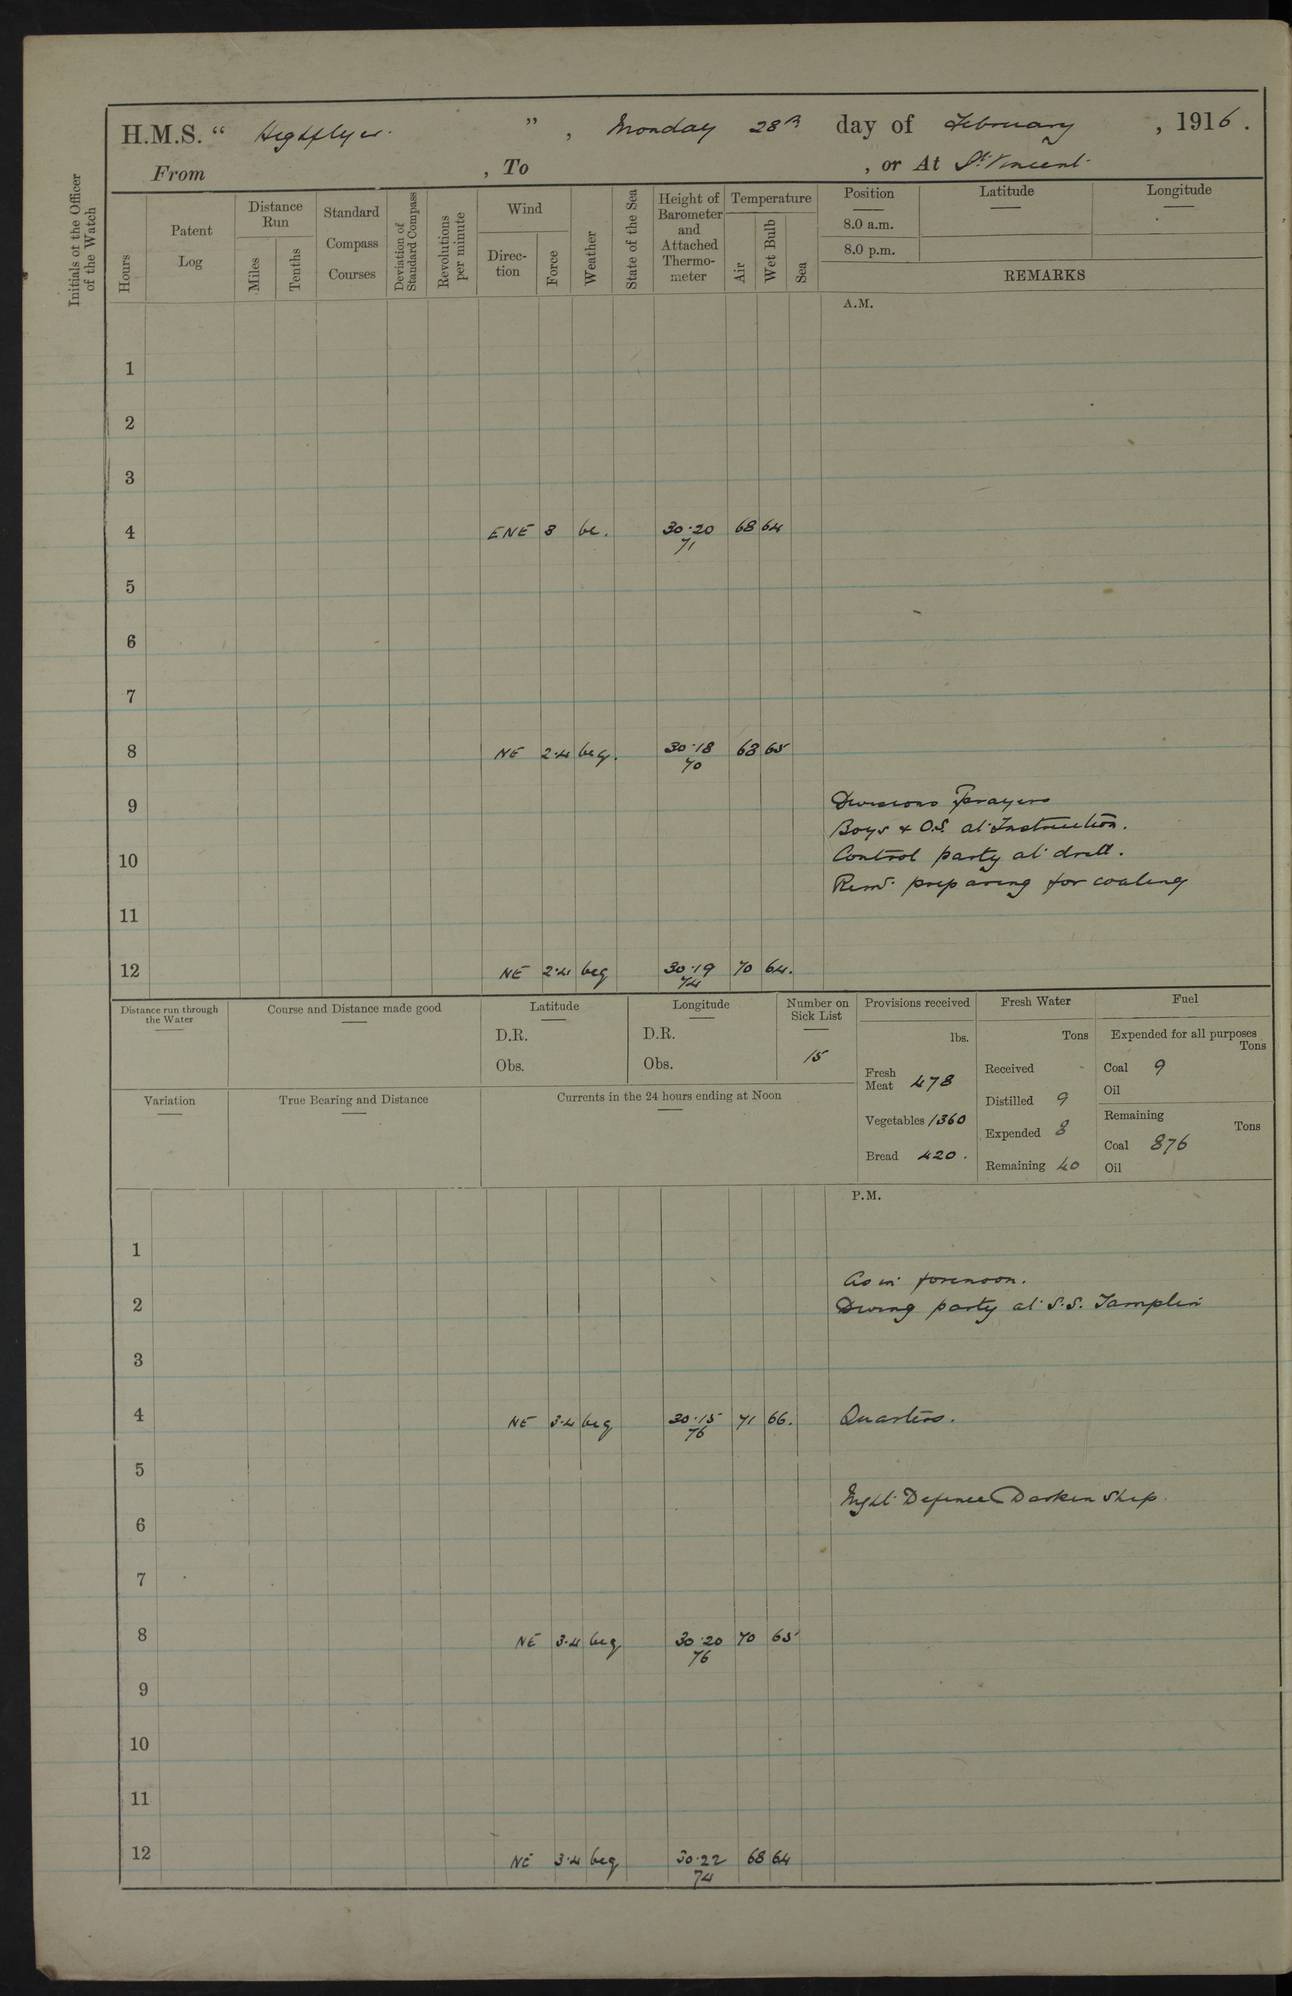 H.M.S. " Highflyer. " , Monday 28th day of February , 1916.
From , To , or At St Vincent.
Initials of the Officer of the Watch
Hours
Patent Log
Distance Run
Miles
Tenths
Standard Compass Courses
Deviation of Standard Compass
Revolutions per minute
Wind
Direc-tion
Force
Weather
State of the Sea
Height of Barometer and Attached Thermo-meter
Temperature
Air
Wet Bulb
Sea
Position Latitude Longitude
8.0 a.m.
8.0 p.m.
REMARKS
A.M.
1
2
3
4 ENE 3 bc. 30.20 68 64
71
5
6
7
8 NE 2.4 bcq. 30.18 68 65
70
9 Divisions Prayers
Boys & O.S. at Instruction.
10 Control party at drill.
Remr. preparing for coaling
11
12 NE 2.4 bcq 30.19 70 64.
74
Distance run through the Water
Course and Distance made good
Latitude
D.R.
Obs.
Longitude
D.R.
Obs.
Number on Sick List
15
Provisions received
lbs.
Fresh Meat 478
Vegetables 1360
Bread 420.
Fresh Water
Tons
Received
Distilled 9
Expended 8
Remaining 40
Fuel
Expended for all purposes
Tons
Coal 9
Oil
Remaining
Tons
Coal 876
Oil
Variation
True Bearing and Distance
Currents in the 24 hours ending at Noon
P.M.
1
As in forenoon.
2 Diving party at S.S. Tamplin
3
4 NE 3.4 bcq 30.15 71 66. Quarters.
76
5
Night Defence Darken Ship.
6
7
8 NE 3.4 bcq 30.20 70 65
76
9
10
11
12 NE 3.4 bcq 30.22 68 64
74